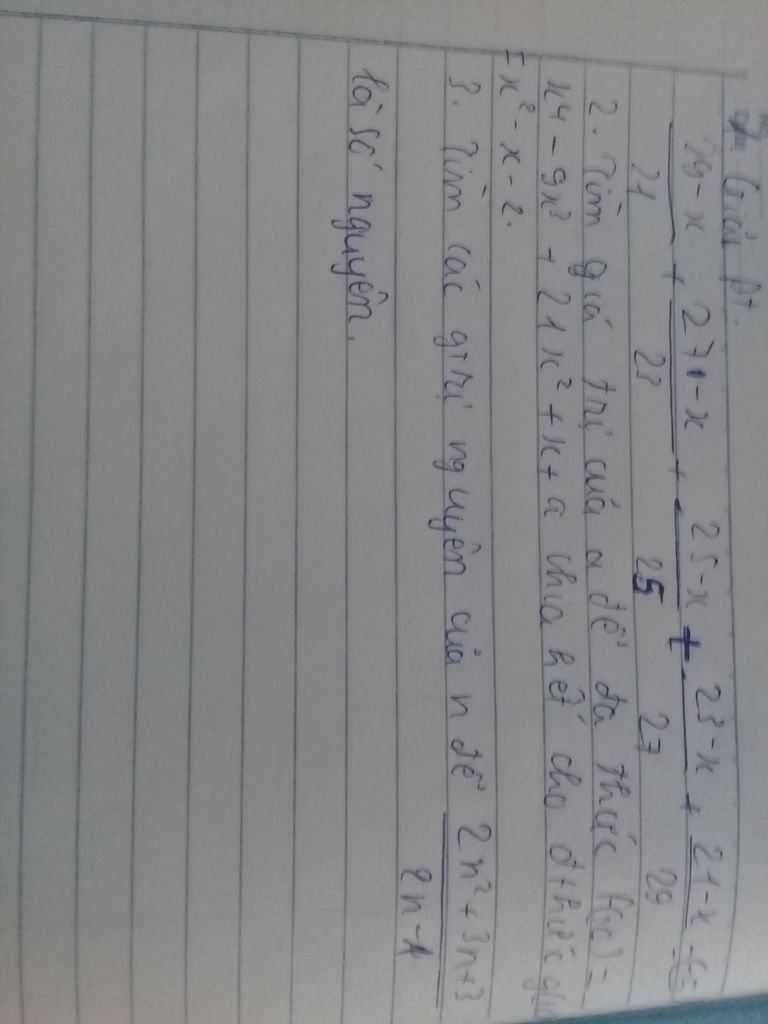 Giải pt.
29-x/21 + 27-x/23 + 25-x/25 + 23-x/27 + 21-x/29 = -5
2. Tìm giá trị của a để đa thức f(x) =
x⁴ - 9x³ + 21x² + x + a chia hết cho đ thức g(x)
= x² - x - 2.
3. Tìm các gtrị nguyên của n để 2n²+3n+3/2n-1
là số nguyên.